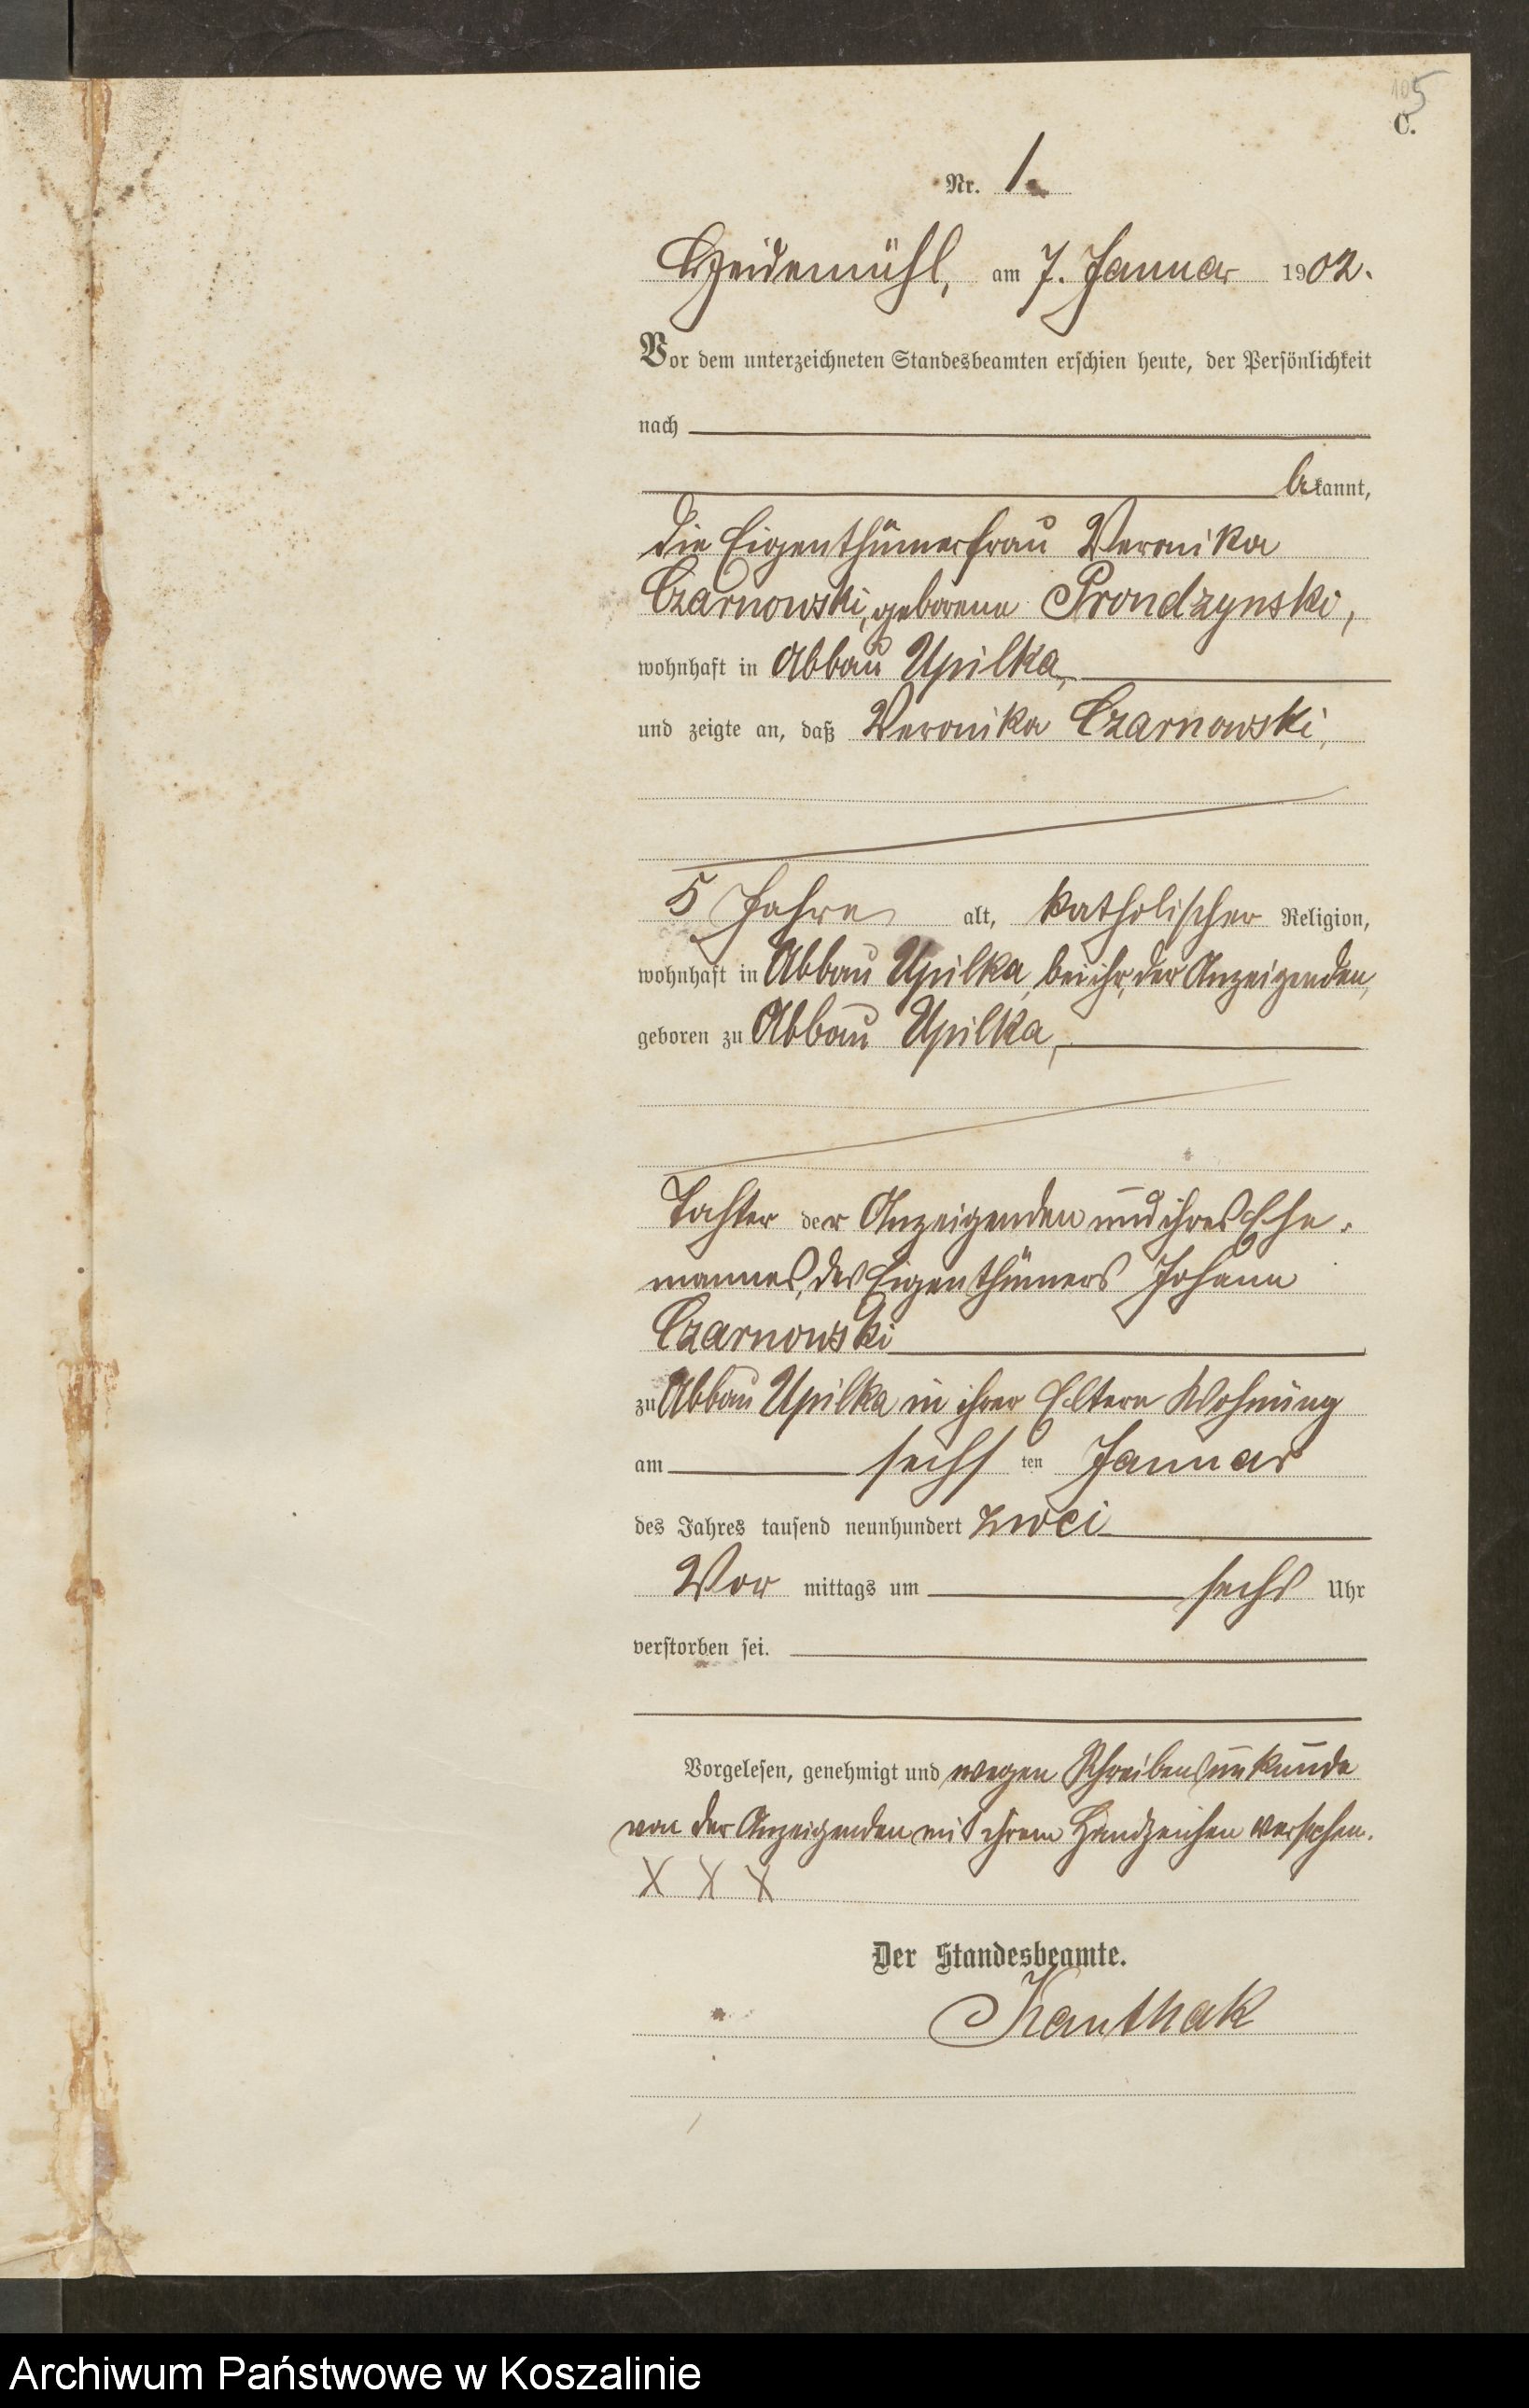 105
C.
Nr. 1.
Heidemühl, am 7. Januar 1902.
Vor dem unterzeichneten Standesbeamten erschien heute, der Persönlichkeit
nach
bekannt,
die Eigenthümerfrau Veronika
Czarnowski, geborene Prondzynski,
wohnhaft in Abbau Upilka,
und zeigte an, daß Veronika Czarnowski,
5 Jahre alt, katholischer Religion,
wohnhaft in Abbau Upilka, bei ihr, der Anzeigenden,
geboren zu Abbau Upilka,
Tochter der Anzeigenden und ihres Ehe-
mannes, des Eigenthümers Johann
Czarnowski
zu Abbau Upilka in ihrer Eltern Wohnung
am sechsten Januar
des Jahres tausend neunhundert zwei
Vor mittags um sechs Uhr
verstorben sei.
Vorgelesen, genehmigt und wegen Schreibensunkunde
von der Anzeigenden mit ihrem Handzeichen versehen.
X X X
Der Standesbeamte.
Kanthak
Archiwum Państwowe w Koszalinie